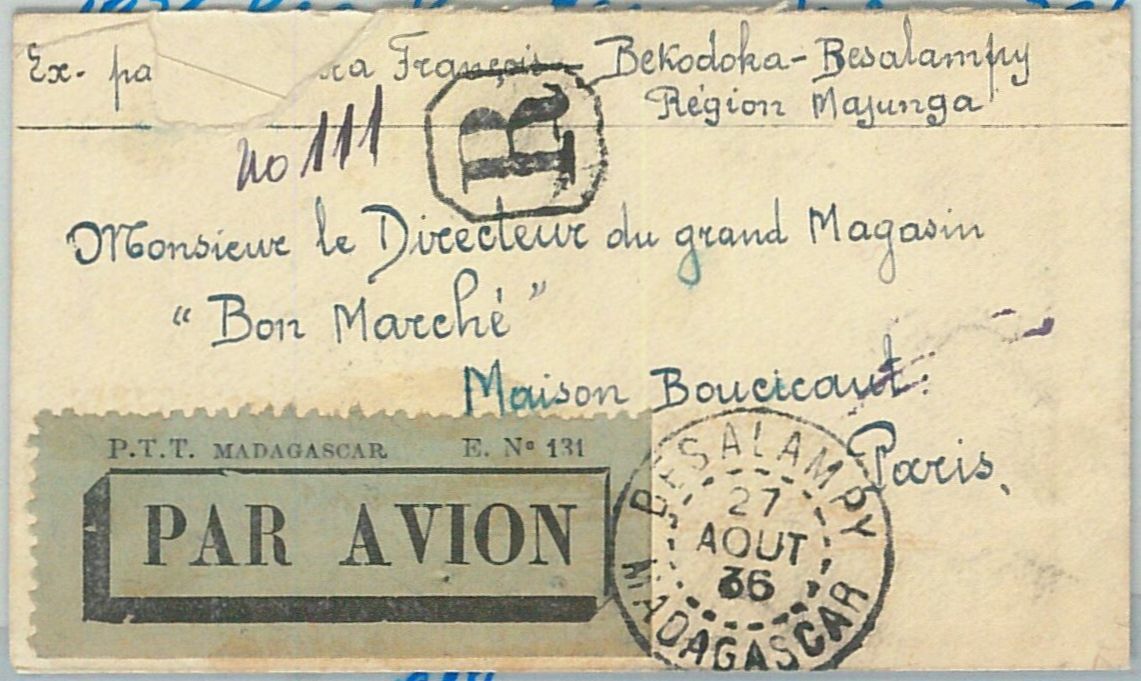 Ex- pa ra François - Bekodoka - Besalampy
Région Majunga
no 111
R
Monsieur le Directeur du grand Magasin
"Bon Marché"
Maison Boucicaut.
Paris.
P.T.T. MADAGASCAR E. Nº 131
PAR AVION
BESALAMPY
27
AOUT
36
MADAGASCAR